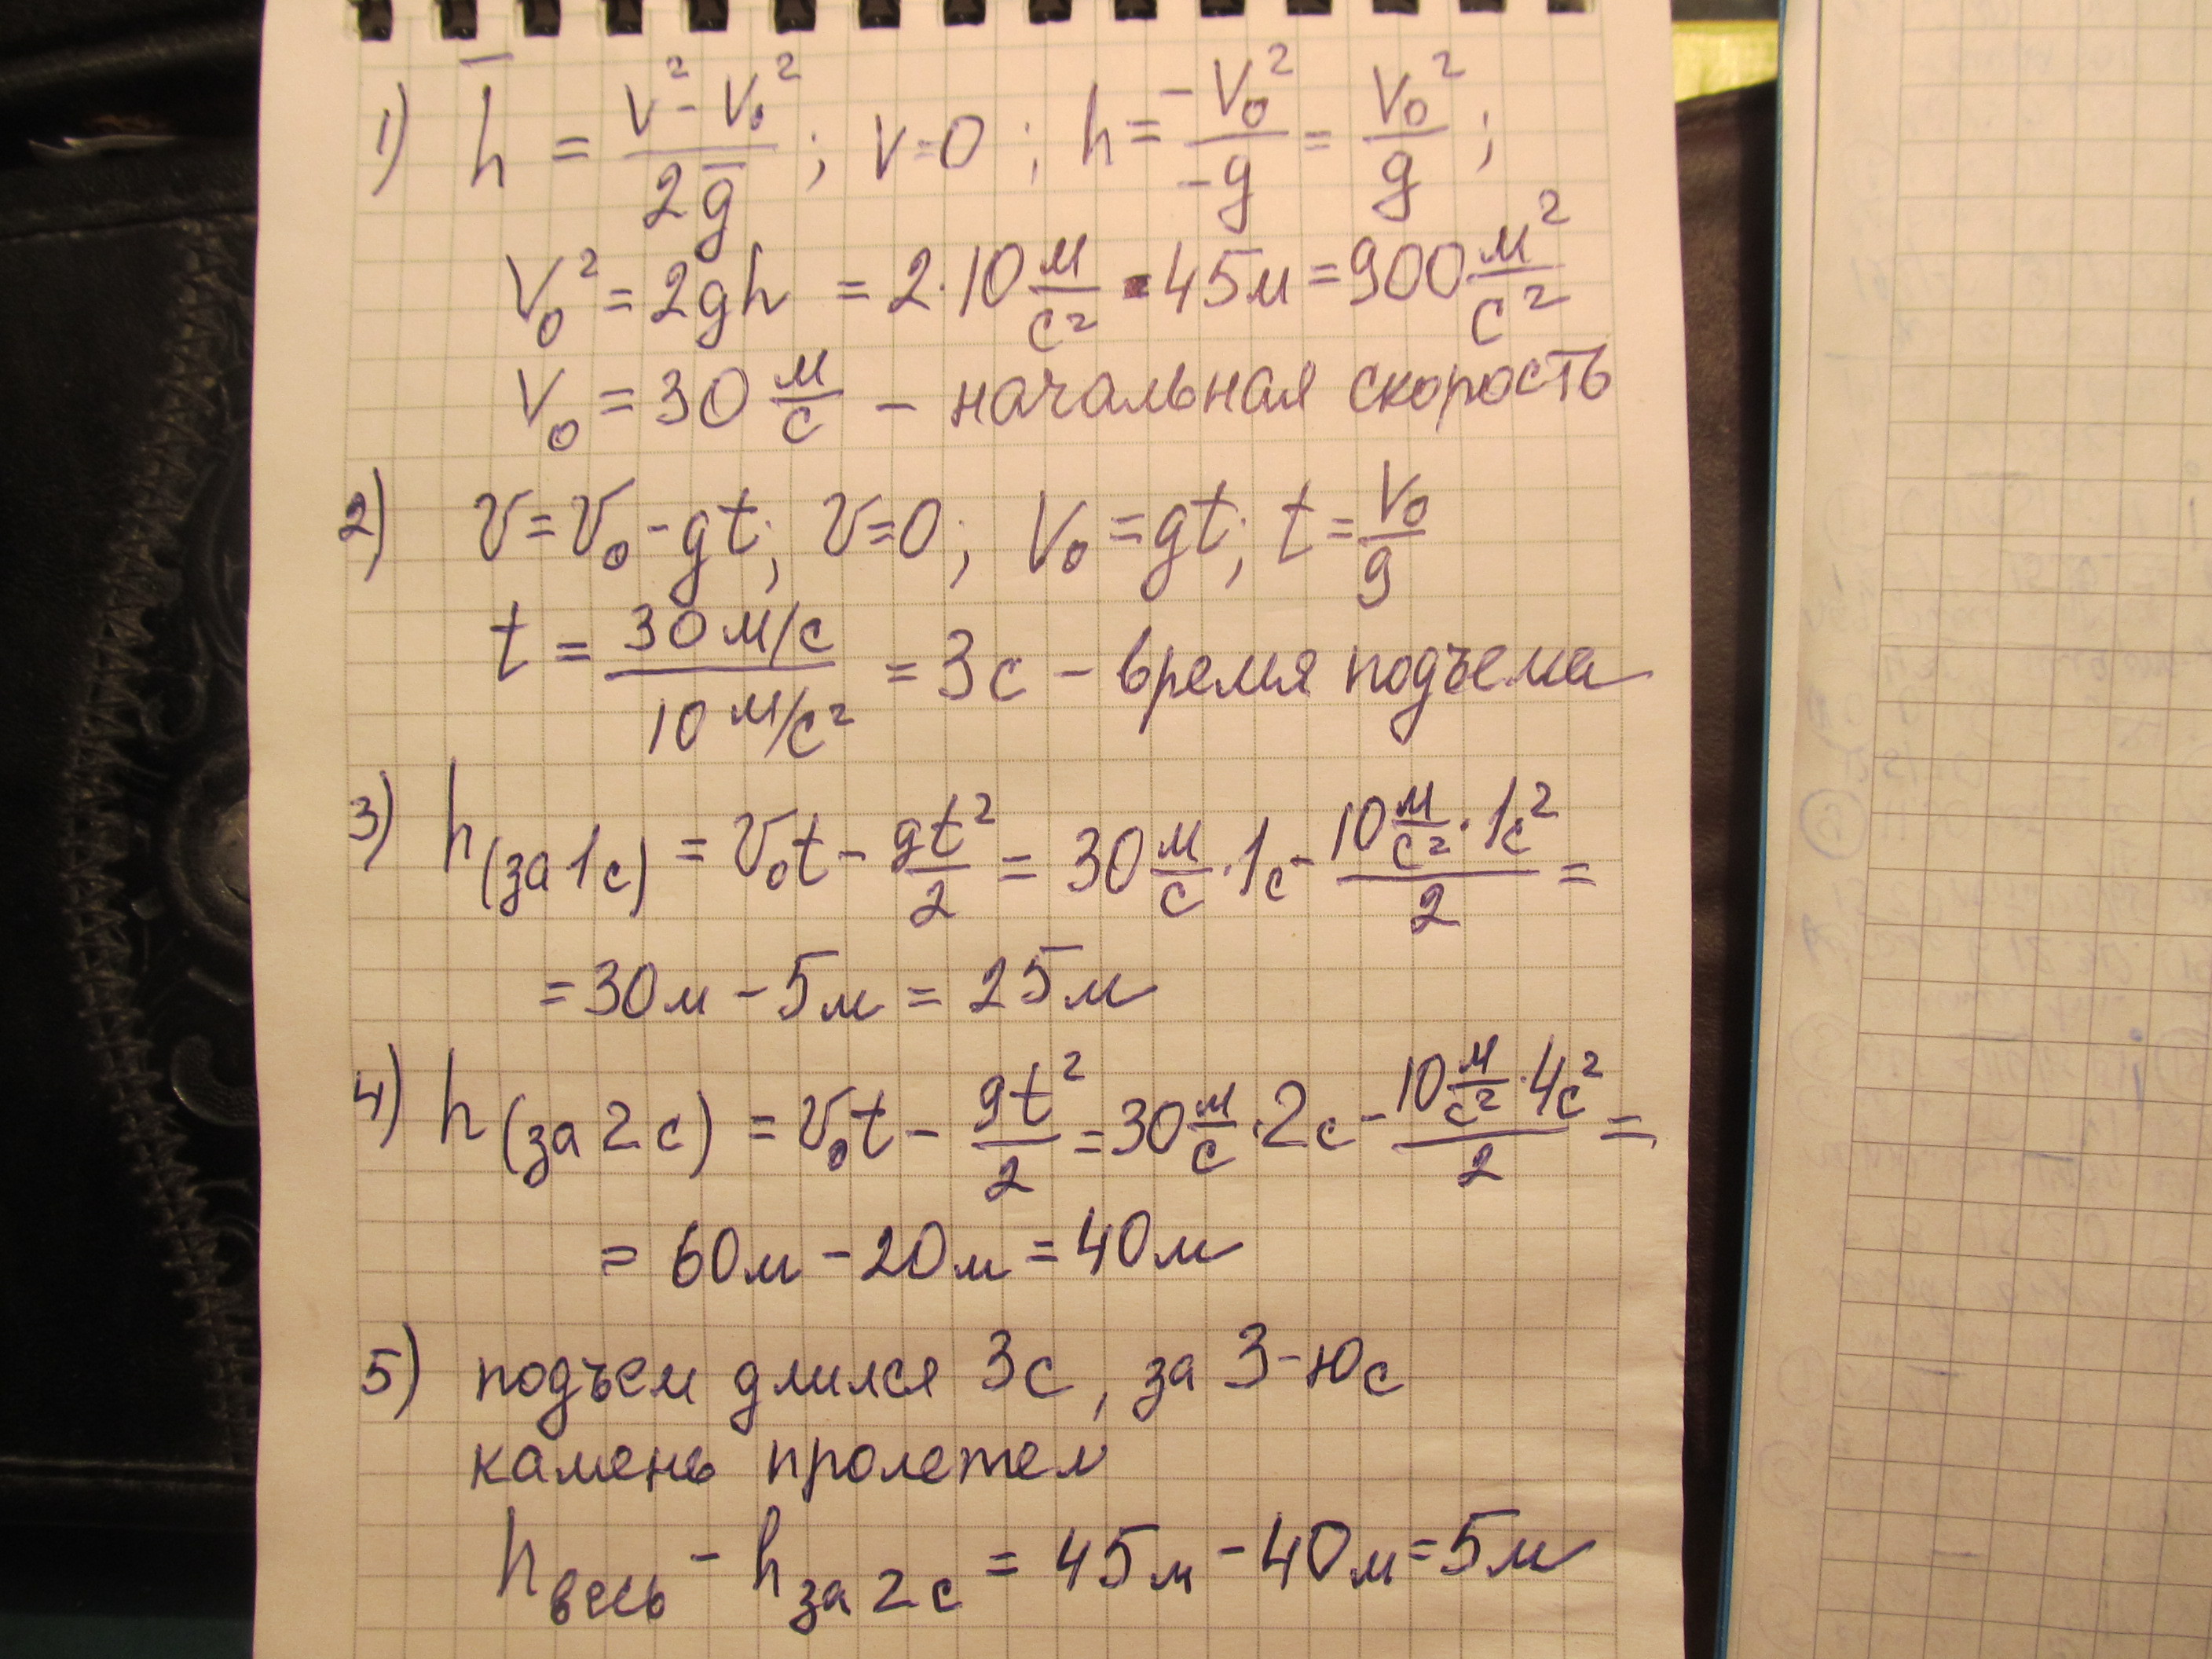 1) h̅ = (v² - v₀²)/(2g̅) ; v=0 ; h = (-v₀²)/(-g) = v₀²/g ;
v₀² = 2gh = 2·10 м/с² · 45м = 900 м²/с²
v₀ = 30 м/с - начальная скорость
2) v = v₀ - gt; v=0; v₀ = gt; t = v₀/g
t = (30 м/с)/(10 м/с²) = 3с - время подъема
3) h(за 1с) = v₀t - gt²/2 = 30 м/с · 1с - (10 м/с² · 1с²)/2 =
= 30м - 5м = 25м
4) h(за 2с) = v₀t - gt²/2 = 30 м/с · 2с - (10 м/с² · 4с²)/2 =
= 60м - 20м = 40м
5) подъем длился 3с, за 3-юс
камень пролетел
hвесь - hза 2с = 45м - 40м = 5м